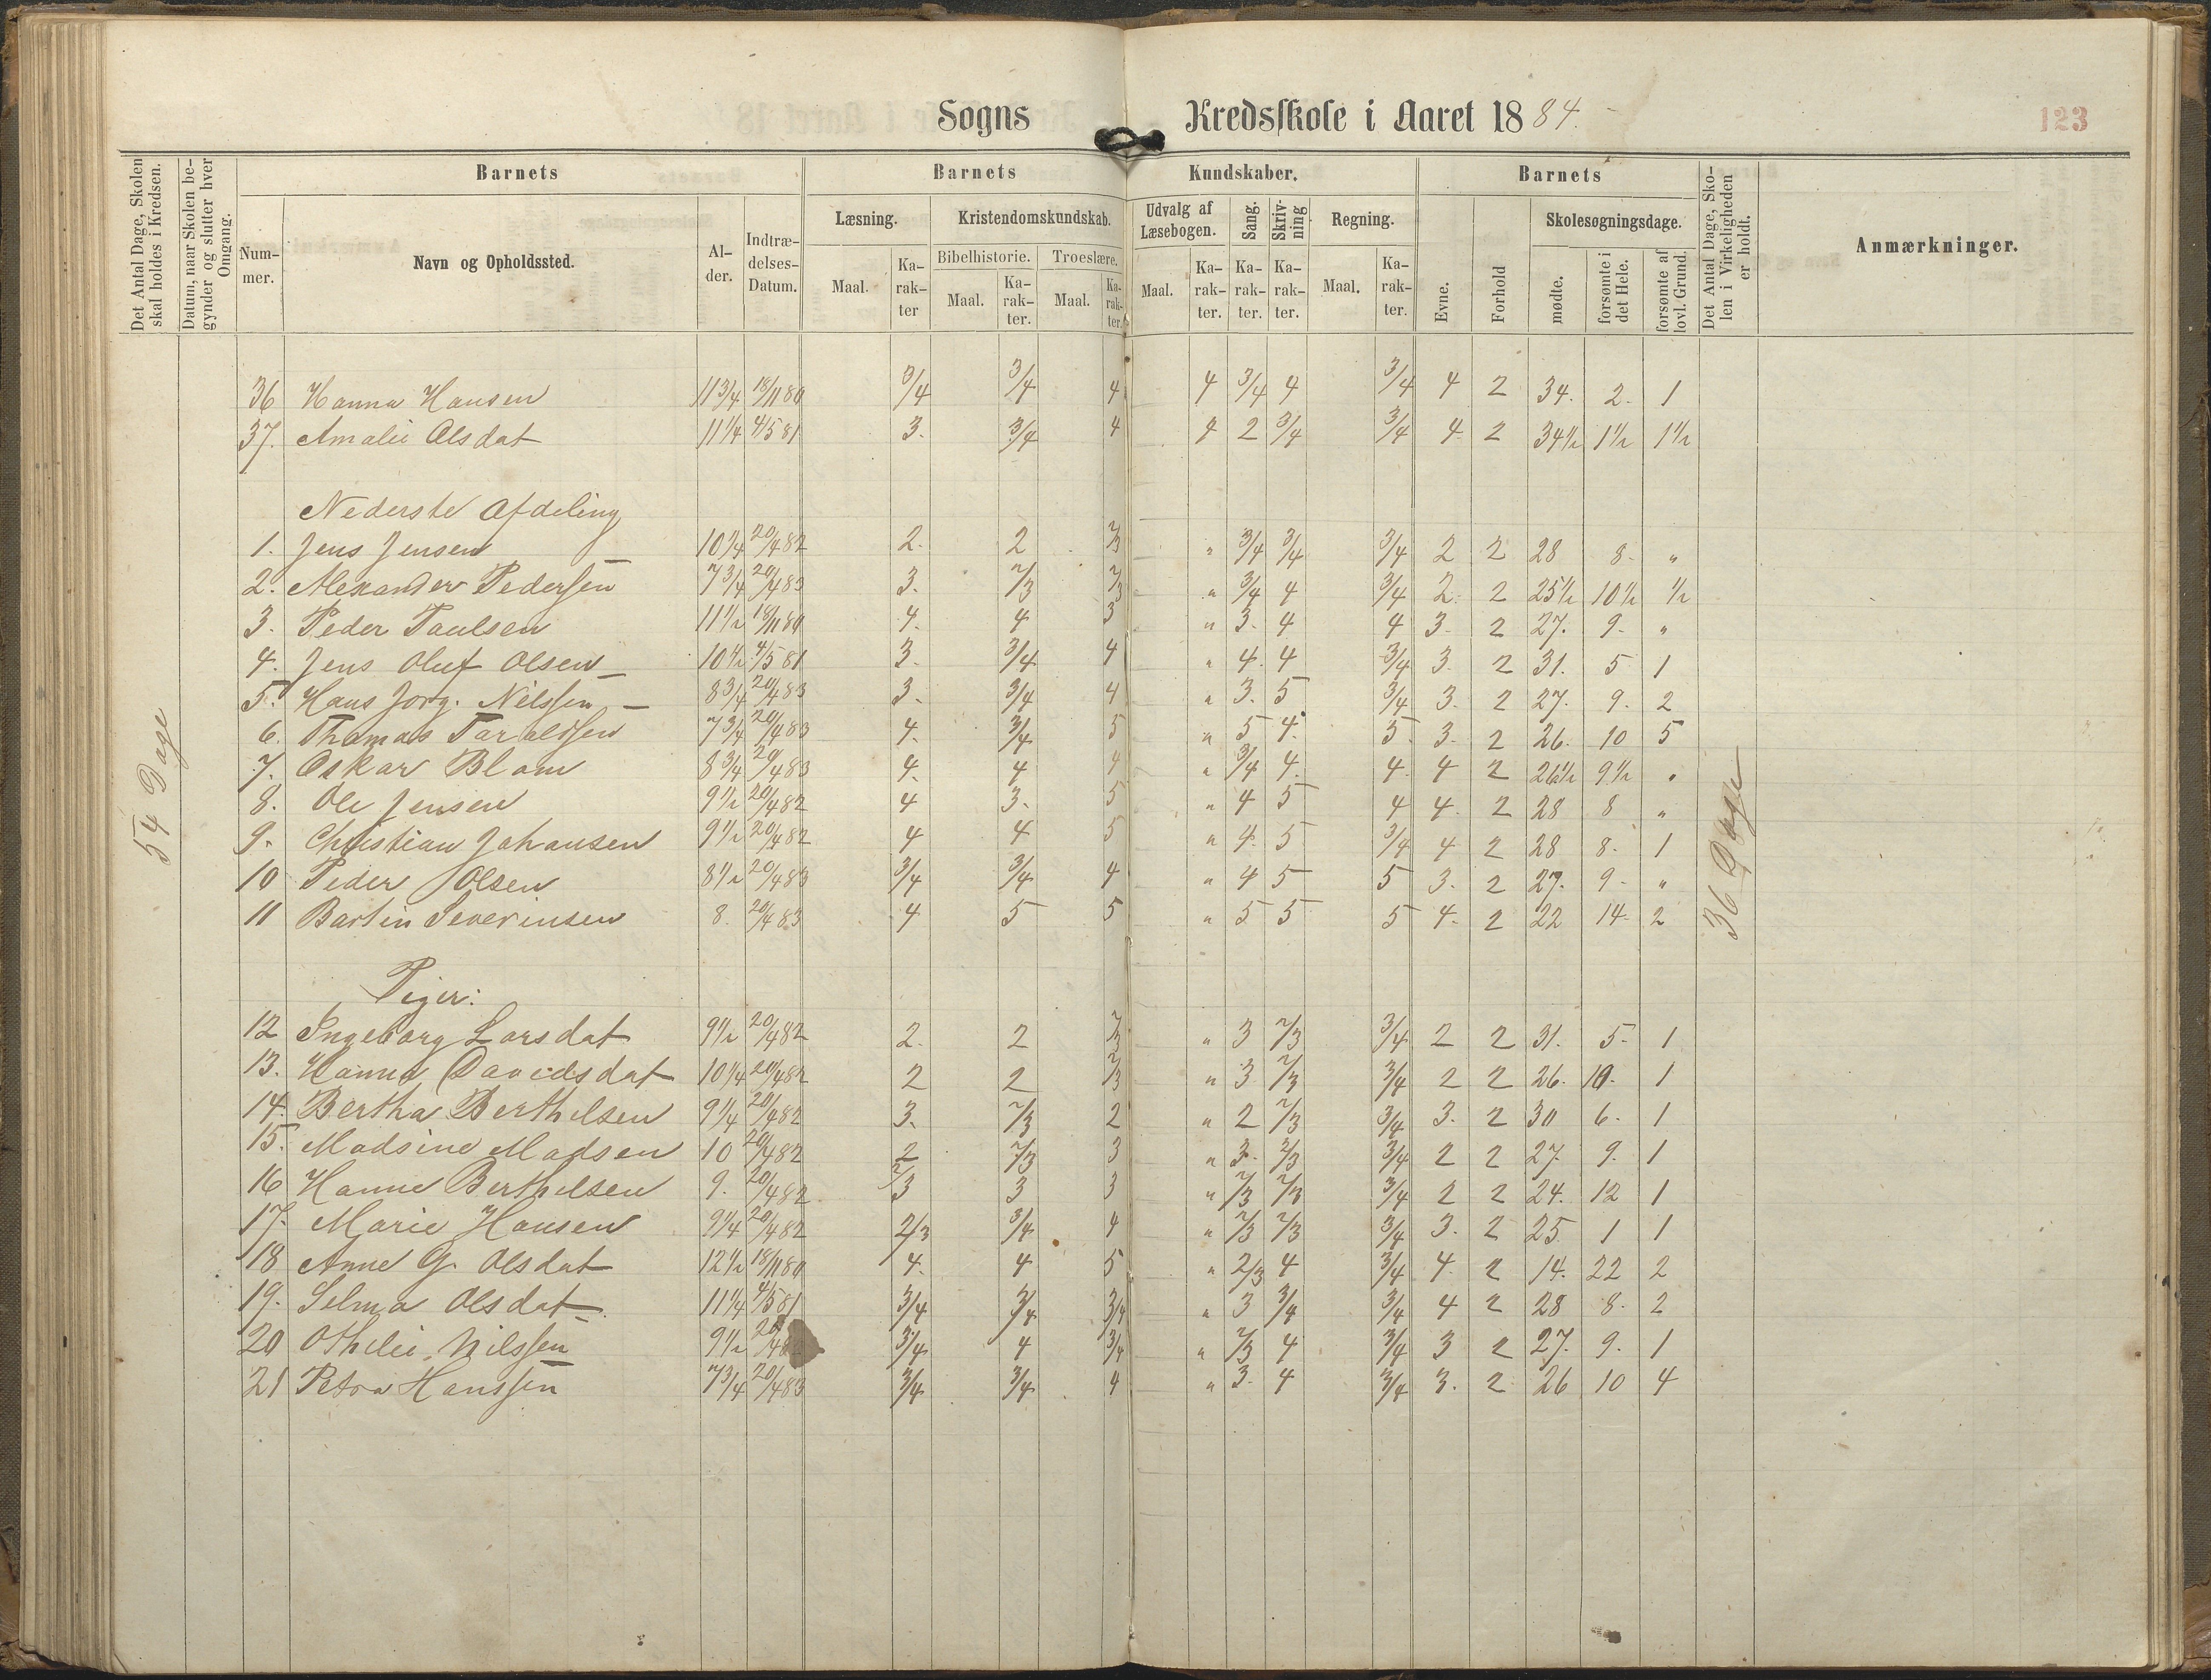 Sogns Kredsskole i Aaret 1884.
123
Det Antal Dage, Skolen skal holdes i Kredsen.
Datum, naar Skolen begynder og slutter hver Omgang.
Barnets
Barnets Kundskaber.
Barnets
Det Antal Dage, Skolen i Virkeligheden er holdt.
Anmærkninger.
Nummer.
Navn og Opholdssted.
Alder.
Indtrædelses-Datum.
Læsning.
Kristendomskundskab.
Udvalg af Læsebogen.
Sang.
Skrivning
Regning.
Evne.
Forhold
Skolesøgningsdage.
Bibelhistorie.
Troeslære.
Maal. Karakter
Maal. Karakter.
Maal. Karakter.
Maal. Karakter.
Karakter.
Karakter.
Maal. Karakter.
mødte.
forsømte i det Hele.
forsømte af lovl. Grund.
54 Dage
36 Dage
36 Hanna Hansen 11 3/4 18/11 80 3/4 3/4 4 4 3/4 4 3/4 4 2 34. 2. 1
37. Amalie Olsdat 11 1/4 4/5 81 3. 3/4 4 4 2 3/4 3/4 4. 2 34 1/2 1 1/2 1 1/2
Nederste Afdeling
1. Jens Jensen 10 1/4 20/4 82 2. 2 2/3 " 3/4 3/4 3/4 2 2 28 8. "
2. Alexander Pedersen 7 3/4 20/4 83 3. 2/3 2/3 " 3/4 4 3/4 2. 2 25 1/2 10 1/2 1/2
3. Peder Paulsen 11 1/2 18/11 80 4. 4 3 " 3. 4 4 3. 2 27. 9. "
4. Jens Oluf Olsen 10 1/2 4/5 81 3. 3/4 4 " 4. 4 3/4 3. 2 31. 5 1
5. Hans Jørg. Nilssen 8 3/4 20/4 83 3. 3/4 4 " 3. 5 3/4 3. 2 27. 9. 2
6. Thomas Taraldsen 7 3/4 20/4 83 4. 3/4 5 " 5 4. 5. 3. 2 26. 10 5
7. Oskar Blom 8 3/4 20/4 83 4. 4 4 " 3/4 4. 4. 4 2 26 1/2 9 1/2 "
8. Ole Jensen 9 1/2 20/4 82 4 3. 5 " 4 5 4 4. 2 28 8 "
9. Christian Johansen 9 1/2 20/4 82 4 4 5 " 4. 5 3/4 4 2 28 8. 1
10 Peder Olsen 8 1/2 20/4 83 3/4 3/4 4 " 4 5 5 3. 2 27. 9. "
11 Bartin Severinsen 8. 20/4 83 4 5 5 " 5 5 5 4. 2 22 14. 2
Piger:
12 Ingeborg Larsdat 9 1/2 20/4 82 2. 2 2/3 " 3 2/3 3/4 2 2 31. 5. 1
13. Hanna Davidsdat 10 1/4 20/4 82 2 2 2/3 " 3 2/3 3/4 2 2 26. 10. 1
14. Bertha Berthelsen 9 1/4 20/4 82 3. 2/3 2 " 2 2/3 3/4 3. 2 30 6. 1
15. Madsine Madsen 10 20/4 82 2 2/3 3 " 3. 2/3 3/4 2 2 27. 9. 1
16 Hanne Berthelsen 9. 20/4 82 2/3 3 3 " 2/3 2/3 3/4 2 2 24. 12 1
17. Marie Hansen 9 1/4 20/4 82 2/3 3/4 4 " 2/3 2/3 3/4 3. 2 25. 1 1
18 Anne G. Olsdat 12 1/2 18/11 80 4. 4 5 " 2/3 4 3/4 4. 2 14. 22 2
19. Selma Olsdat 11 1/4 4/5 81 3/4 3/4 3/4 " 3 3/4 3/4 4 2 28 8. 2
20 Othelie Nilssen 9 1/2 20/4 8 3/4 4 3/4 " 2/3 4 3/4 3 2 27. 9. 1
21 Petra Hanssen 7 3/4 20/4 83 3/4 3/4 4 " 3. 4 3/4 3. 2 26 10 4